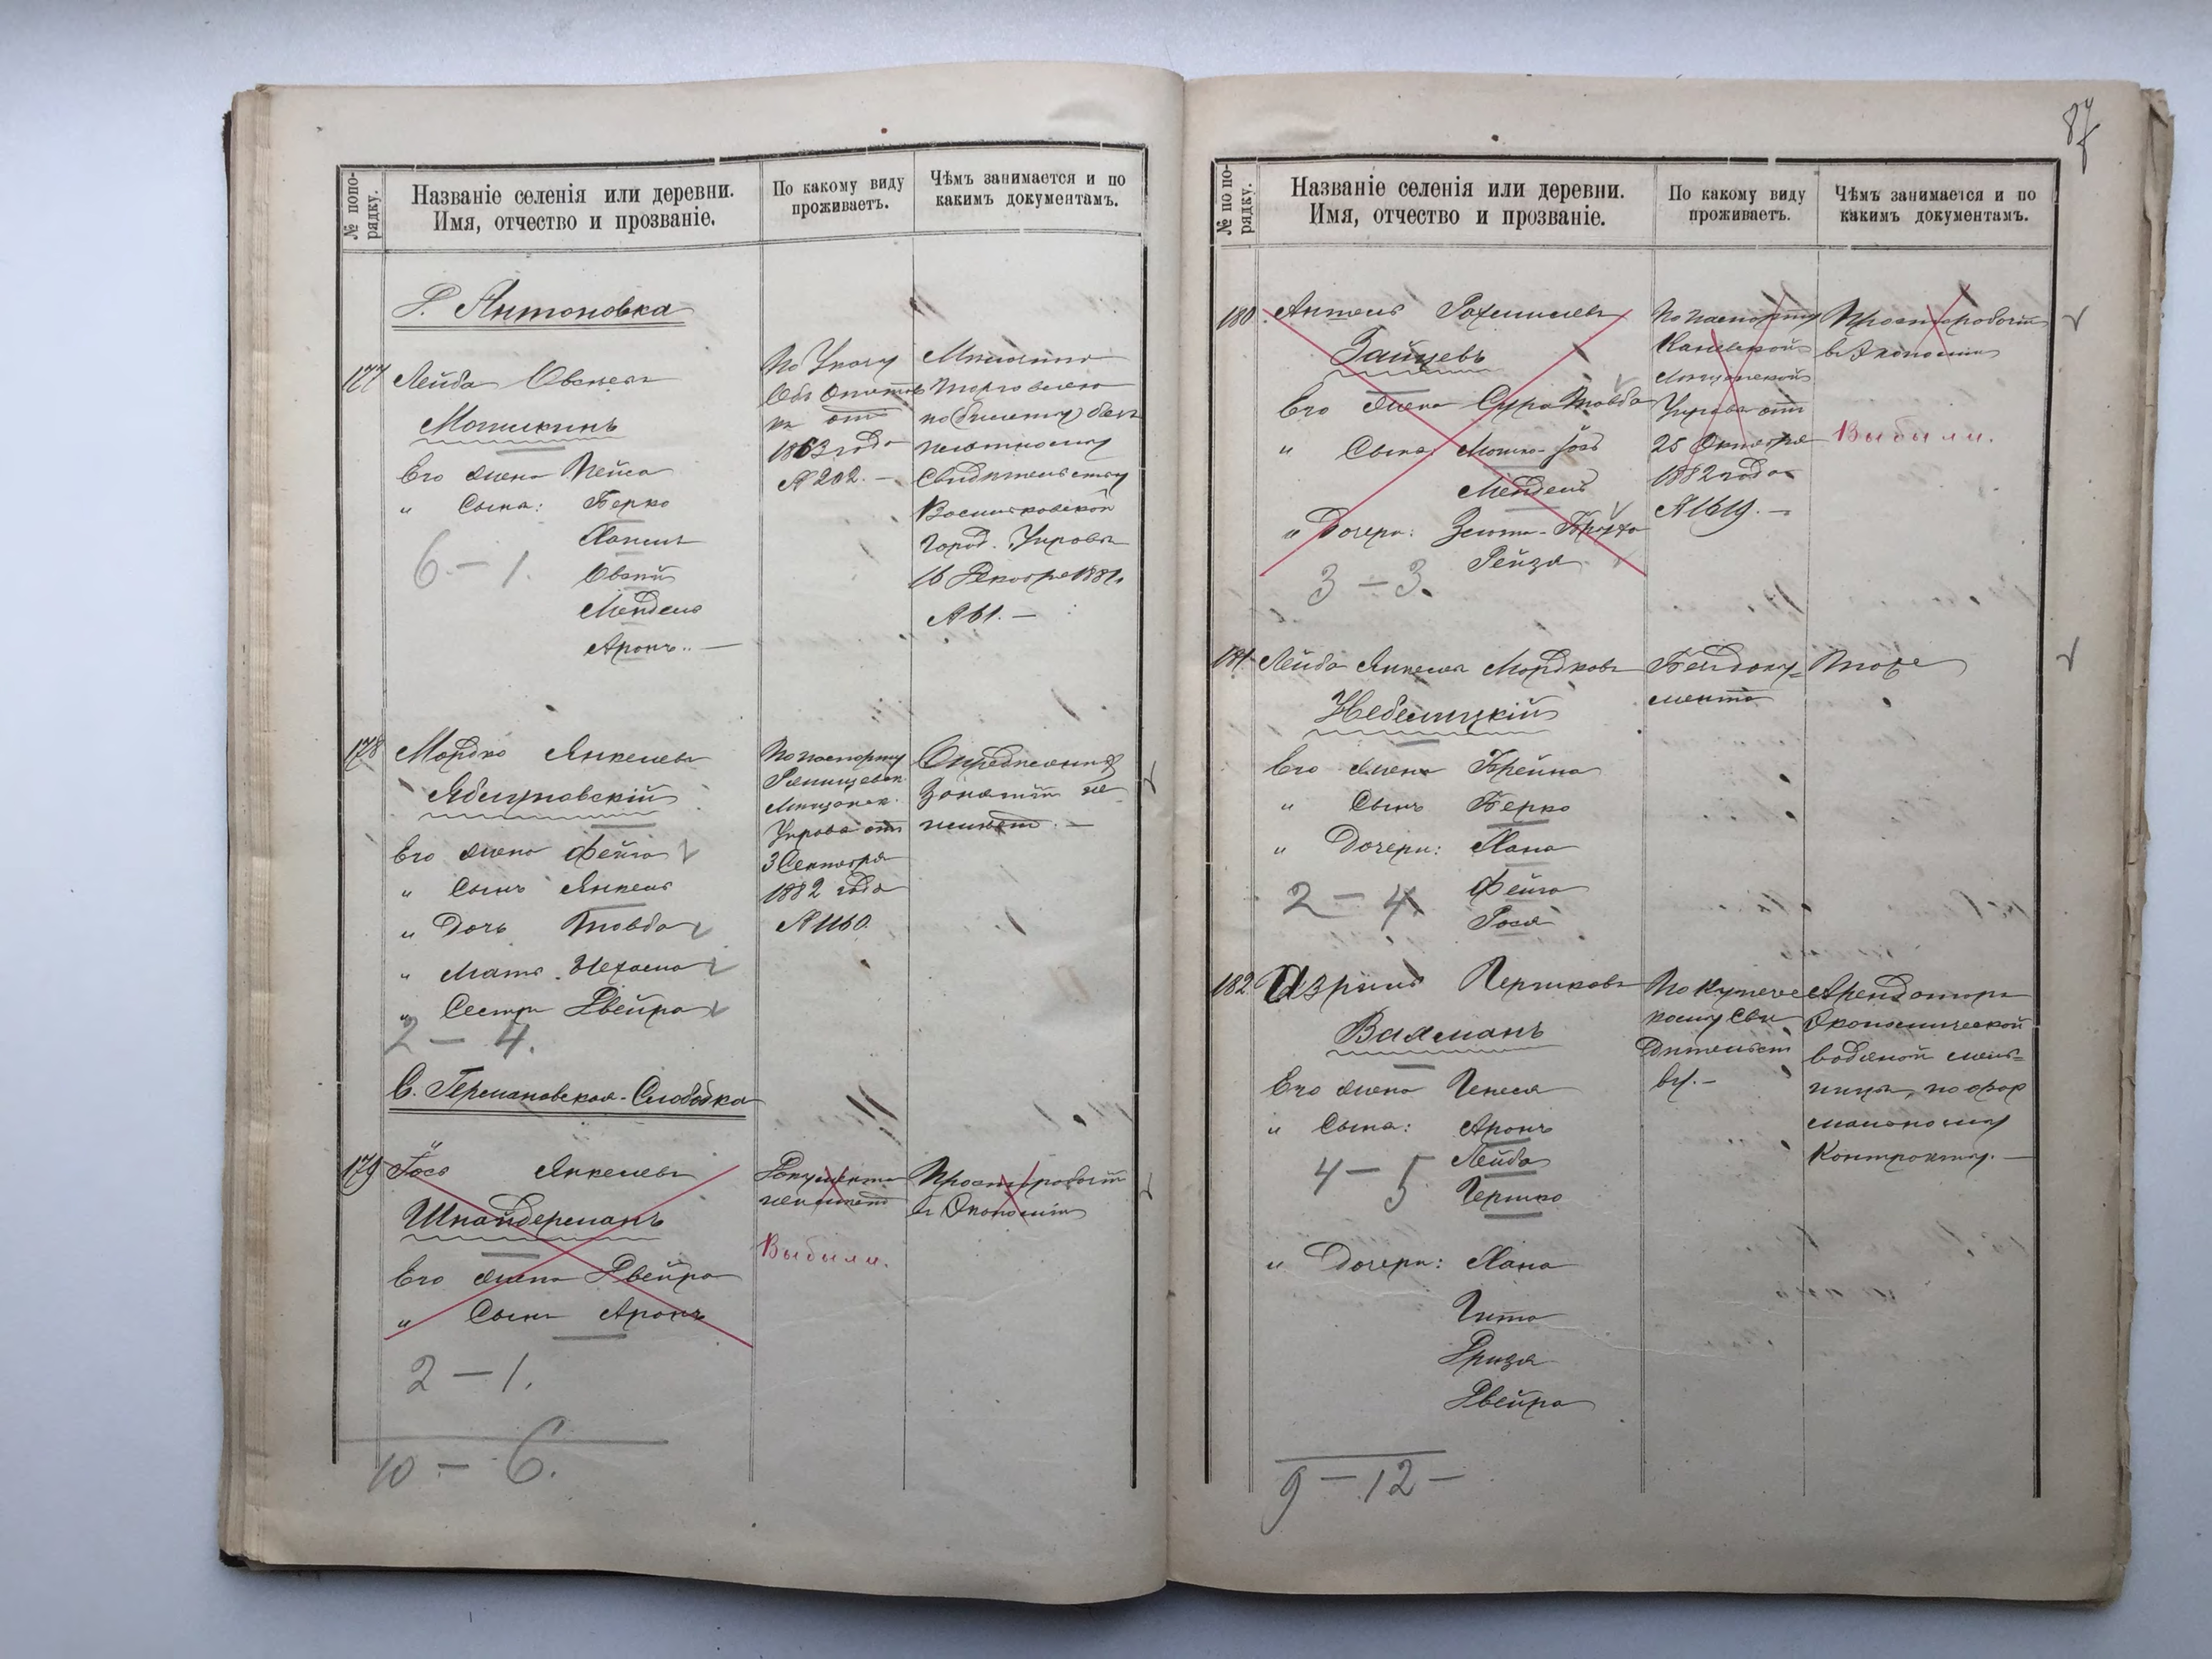 № попо-
рядку.
Названіе селенія или деревни.
Имя, отчество и прозваніе.
По какому виду
проживаетъ.
Чѣмъ занимается и по
какимъ документамъ.
Д. Антоновка
177 Лейба
Мошкинъ
Его жена Пейса
„ Сына: Берко
Мендель
Аронъ. —
6 — 1.
По Указу
объ
1863 года
№ 202. —
торговлею
по (билету) без
Свидетельству
Васильковской
Город. Управы
16 Декабря 188
№ 61. —
178 Мордко Янкелевъ
Яблуновскій
Его жена Фейга
„ Сынъ Янкель
„ Дочь Товба
„ Мать Нехама
„ Сестра Двейра
2 — 4.
По паспорту
Ржищевск.
Мещанск.
Управа отъ
3 Сентября
1882 года
№ 1160.
Определенныхъ
занятій не
имеетъ. —
С. Германовская-Слободка
179 Іосъ Янкелевъ
Шнайдерманъ
Его жена Двейра
„ Сынъ Аронъ
2 — 1.
Документа
неимеетъ
Выбыли.
Просторабочій
въ Экономіи
10 — 6.
87
№ по по-
рядку.
Названіе селенія или деревни.
Имя, отчество и прозваніе.
По какому виду
проживаетъ.
Чѣмъ занимается и по
какимъ документамъ.
180 Рахмилевъ
Зайцевъ
Его жена Сура Товба
„ Сына: Мошко-Іосъ
Мендель
„ Дочери: Злота-Бруха
Рейзя
3 — 3.
По паспорту
Каневской
Мещанской
Управы отъ
25 Октября
1882 года
№ 1619. —
Просторабочій
въ Экономіи
Выбыли.
181 Лейба Янкелевъ Мордковъ
Небелицкій
Его жена Брейна
„ Сынъ Берко
„ Дочери: Хана
Фейга
Рося
2 — 4
Бездоку=
мента
Тоже
182 Азріиль Гершковъ
Вахманъ
Его жена Генеся
„ Сына: Аронъ
Лейба
Гершко
4 — 5
„ Дочери: Хана
Гитта
Двейра
По Купече
скому Сви
дѣтельст
ву. —
Арендаторъ
Экономической
водяной мель=
ницы, по фор
мальному
Контракту. —
9 — 12 —